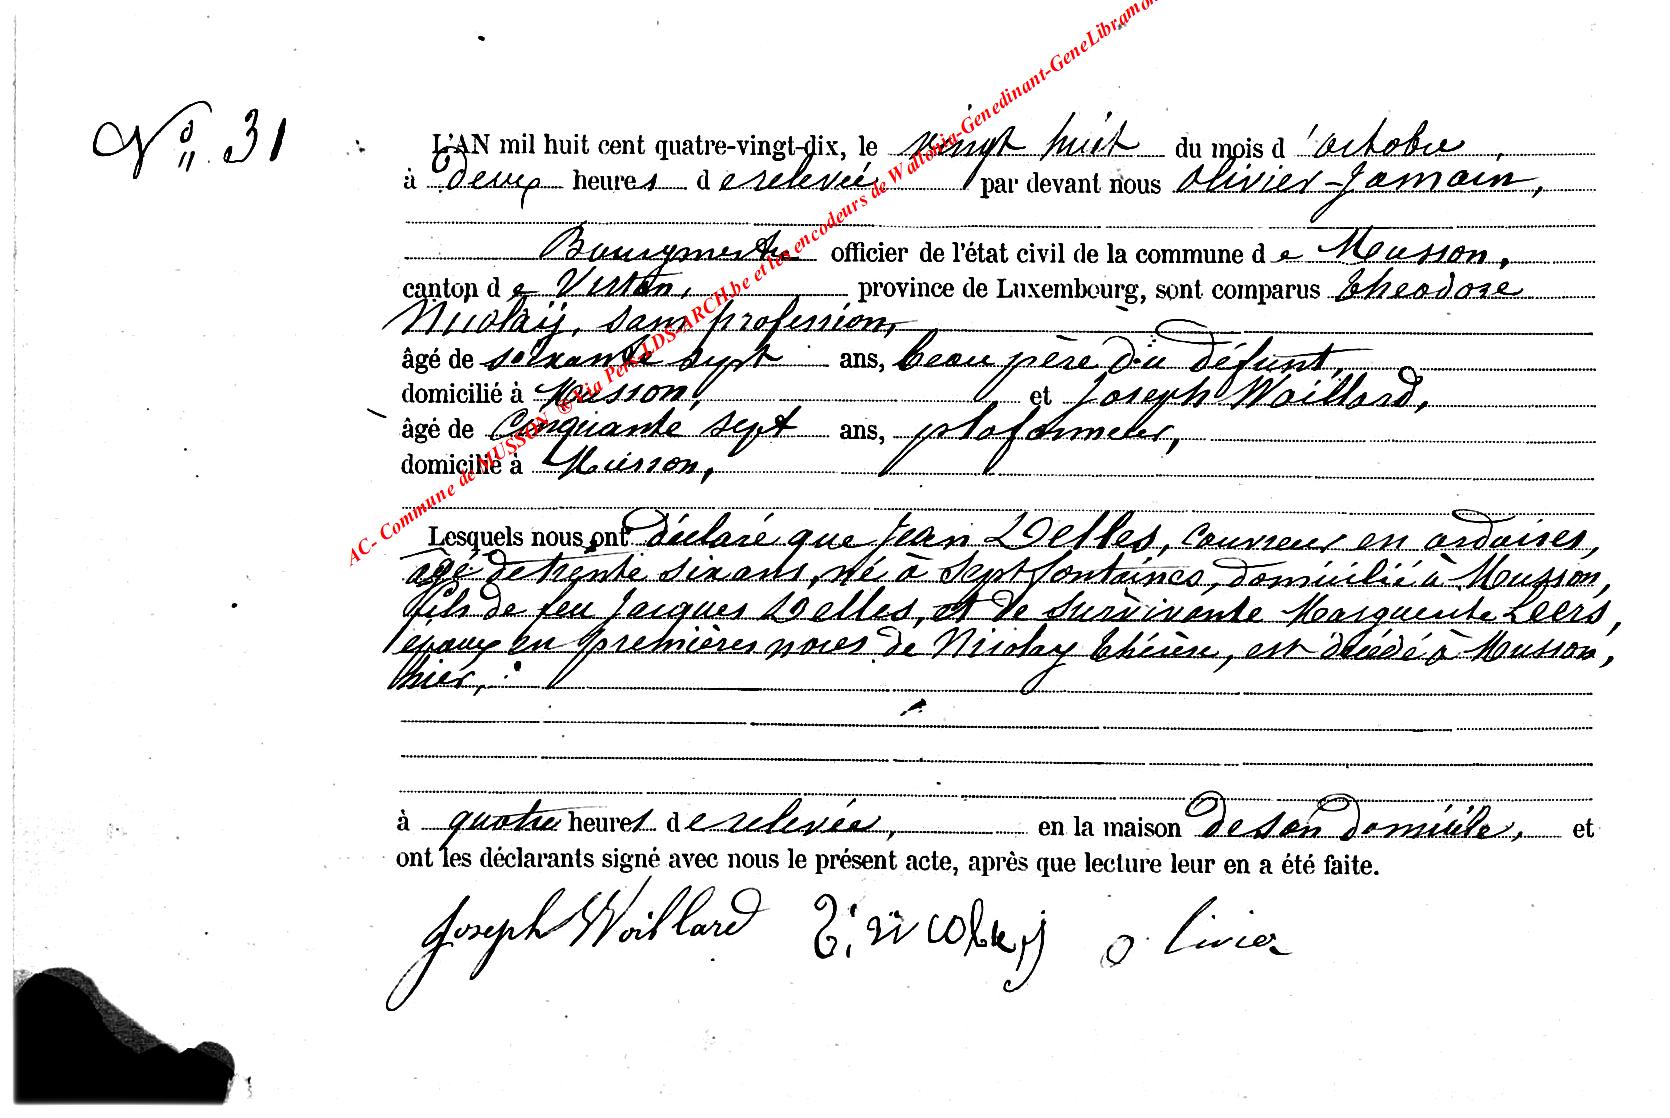 N° 31
L'AN mil huit cent quatre-vingt-dix, le vingt huit du mois d'octobre,
à deux heures de relevée par devant nous Olivier-Jamain,
Bourgmestre officier de l'état civil de la commune de Musson,
canton de Virton, province de Luxembourg, sont comparus Theodore
Nicolaÿ, sans profession,
âgé de soixante sept ans, beau père du défunt,
domicilié à Musson, et Joseph Woillard,
âgé de Cinquante sept ans, plafonneur,
domicilié à Musson,
Lesquels nous ont déclaré que Jean Delles, couvreur en ardoises,
âgé de trente six ans, né à Septfontaines, domicilié à Musson,
fils de feu Jacques Delles, et de survivante Marguerite Leers,
époux en premières noces de Nicolay Thérèse, est décédé à Musson,
hier,
à quatre heures de relevée, en la maison de son domicile, et
ont les déclarants signé avec nous le présent acte, après que lecture leur en a été faite.
Joseph Woillard T. Nicolay Olivier
AC- Commune de MUSSON ® Via Pers-LDS-ARCH.be et les encodeurs de Wallonia-Genedinant-GeneLibramon